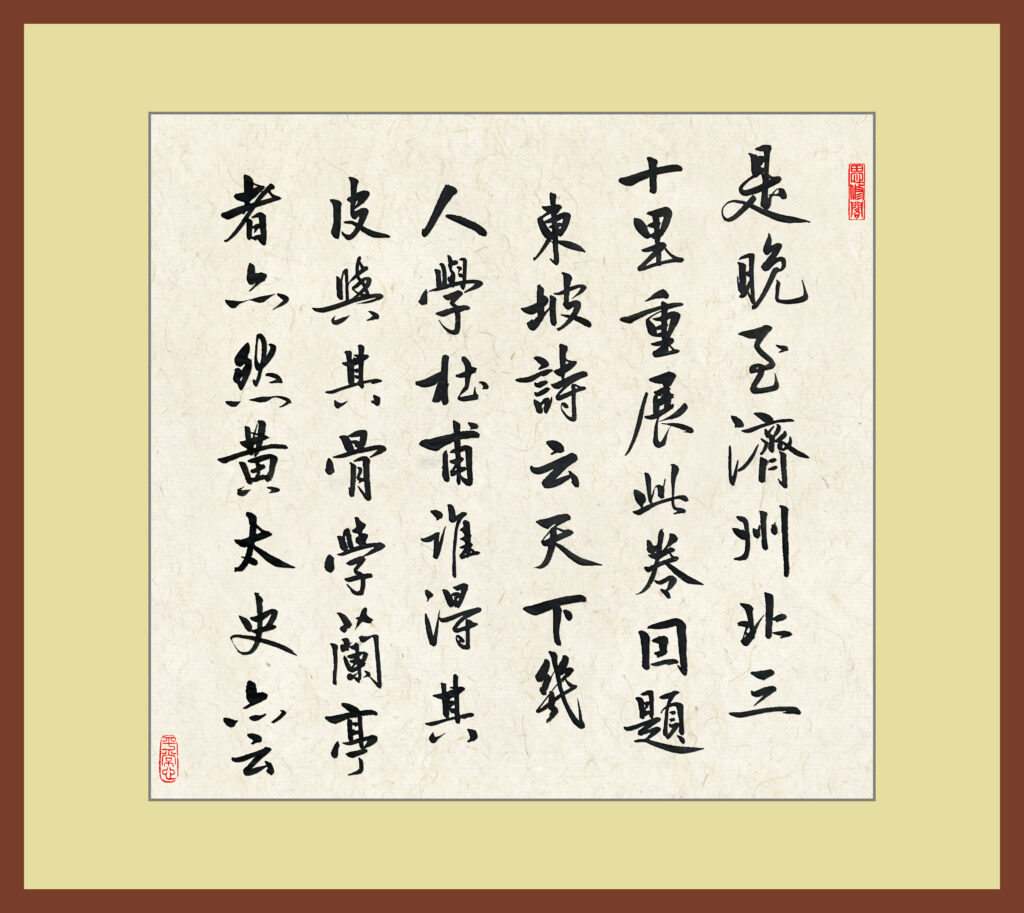 是晚至濟州北三
十里重展此卷因題
東坡詩云天下幾
人學杜甫誰得其
皮與其骨學蘭亭
者亦然黃太史亦云
思脩閣
平常心